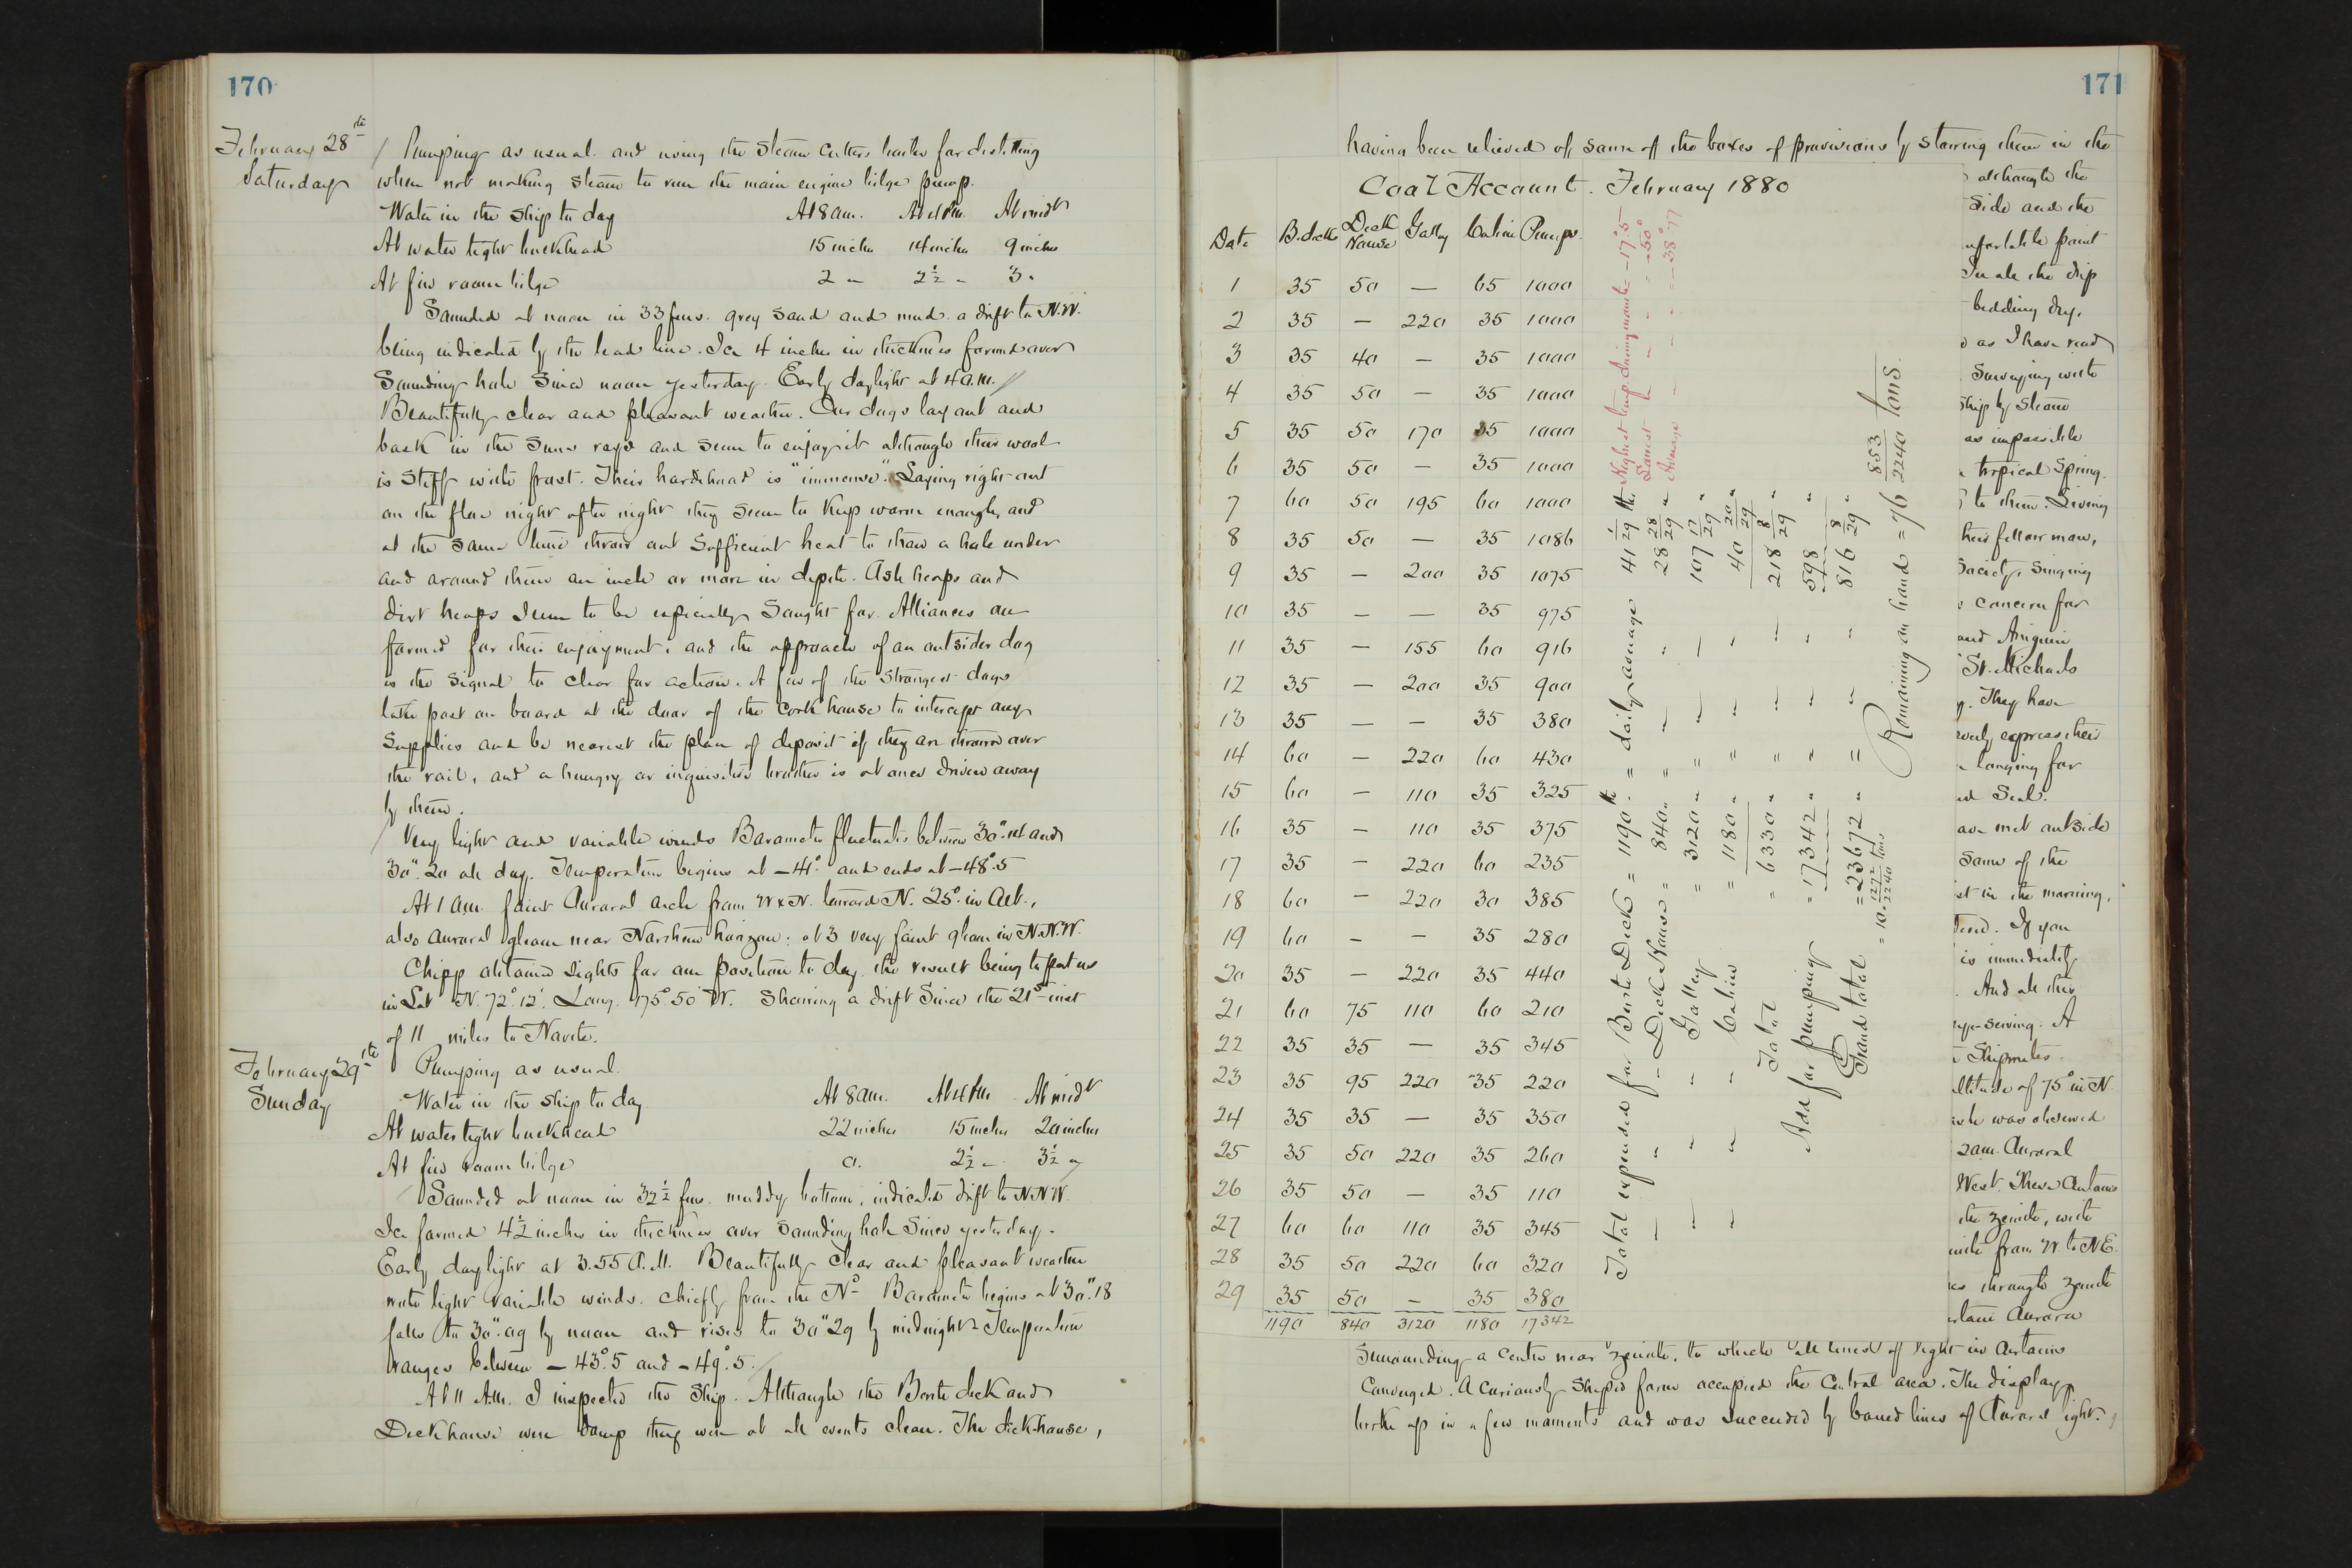 170
February 28th
Saturday
Pumping as usual. and using the Steam Cutters boiler for distilling
when not making steam to run the main engine bilge pump.
Water in the ship to day At 8 am. At 4 P.M. At midt
At water tight bulkhead 15 inches 14 inches 9 inches
At fire room bilge 2 " 2½ " 3 "
Sounded at noon in 33 fms. grey sand and mud. a drift to N.W.
being indicated by the lead line. Ice 4 inches in thickness formed over
Sounding hole since noon yesterday. Early daylight at 4 a.m.
Beautifully clear and pleasant weather. Our dogs lay out and
bask in the Suns rays and seem to enjoy it although their wool
is stiff with frost. Their hardihood is "immense". Laying right out
on the floe night after night they seem to keep warm enough, and
at the same time throw out sufficient heat to thaw a hole under
and around them an inch or more in depth. Ash heaps and
dirt heaps seem to be especially sought for. Alliances are
formed for their enjoyment, and the approach of an outsider dog
is the signal to clear for action. A few of the strongest dogs
take post on board at the door of the Cook house to intercept any
Supplies and be nearest the place of deposit if they are thrown over
the rail, and a hungry or inquisitive brother is at once driven away
by them.
Very light and variable winds Barometer fluctuates between 30".14 and
30".20 all day. Temperature begins at -41.° and ends at -48°.5
At 1 am. faint Auroral arch from W x N. toward N. 25° in Alt.,
also auroral gleam near Northern horizon: at 3 very faint gleam in N.N.W.
Chipp obtained sights for our position to day. the result being to put us
in Lat N. 72°.12'. Long. 175°.50' W. Showing a drift since the 21st inst
of 11 miles to North.
February 29th
Sunday
Pumping as usual.
Water in the ship to day At 8 am. At 4 P.M. At midt
At water tight bulkhead 22 inches 15 inches 20 inches
At fire room bilge 0. 2½ " 3½ "
Sounded at noon in 32½ fms. muddy bottom, indicated drift to N.N.W.
Ice formed 4½ inches in thickness over sounding hole since yesterday.
Early daylight at 3.55 A.M. Beautifully clear and pleasant weather
with light variable winds. chiefly from the Nd Barometer begins at 30".18
falls to 30".09 by noon and rises to 30".29 by midnight. Temperature
ranges between -43°.5 and -49°.5.
At 11 A.M. I inspected the Ship. Although the Berth deck and
Deck house were damp they were at all events clean. The deck-house,
171
having been relieved of some of the boxes of provisions by stowing them in the
Coal Account. February 1880
Date B. deck Deck House Galley Cabin Pumps.
1 35 50 — 65 1000
2 35 — 220 35 1000
3 35 40 — 35 1000
4 35 50 — 35 1000
5 35 50 170 35 1000
6 35 50 — 35 1000
7 60 50 195 60 1000
8 35 50 — 35 1086
9 35 — 200 35 1075
10 35 — — 35 975
11 35 — 155 60 916
12 35 — 200 35 900
13 35 — — 35 380
14 60 — 220 60 430
15 60 — 110 35 325
16 35 — 110 35 375
17 35 — 220 60 235
18 60 — 220 30 385
19 60 — — 35 280
20 35 — 220 35 440
21 60 75 110 60 210
22 35 35 — 35 345
23 35 95 220 35 220
24 35 35 — 35 350
25 35 50 220 35 260
26 35 50 — 35 110
27 60 60 110 35 345
28 35 50 220 60 320
29 35 50 — 35 380
1190 840 3120 1180 17342
Highest temp during month = -17°.5
Lowest " " " = -50°
Average " " " = -38°.77
Total expended for Berth Deck = 1190 lb. = daily average 41 1/29 lb.
" " " Deck House = 840 " = " " 28 28/29 "
" " " Galley = 3120 " = " " 107 17/29 "
" " " Cabin = 1180 " = " " 40 20/29 "
Total = 6330 " = " " 218 8/29 "
Add for pumping = 17342 " = " " 598 "
Grand total = 23672 " = " " 816 8/29 "
= 10. 1272/2240 tons
Remaining on hand = 76 853/2240 tons.
although the
side and the
paint
In all the ship
bedding dry.
as I have read
Surveying with
ship by steam
as impossible
tropical Spring.
to them. Living
their fellow man,
Society, Singing
concern for
and Aniguin
St. Michaels
They have
express their
longing for
Seal.
met outside
some of the
in the morning,
If you
is immediately
And all this
serving. A
Shipmates
altitude of 75° in N
was observed
2 am. Auroral
West. These curtains
the zenith, with
from W to N.E.
through zenith
Aurora
Surrounding a centre near zenith, to which all lines of light in curtains
Converged. A curiously shaped form occupied the central area. The display
broke up in a few moments and was succeeded by banded lines of Auroral light.